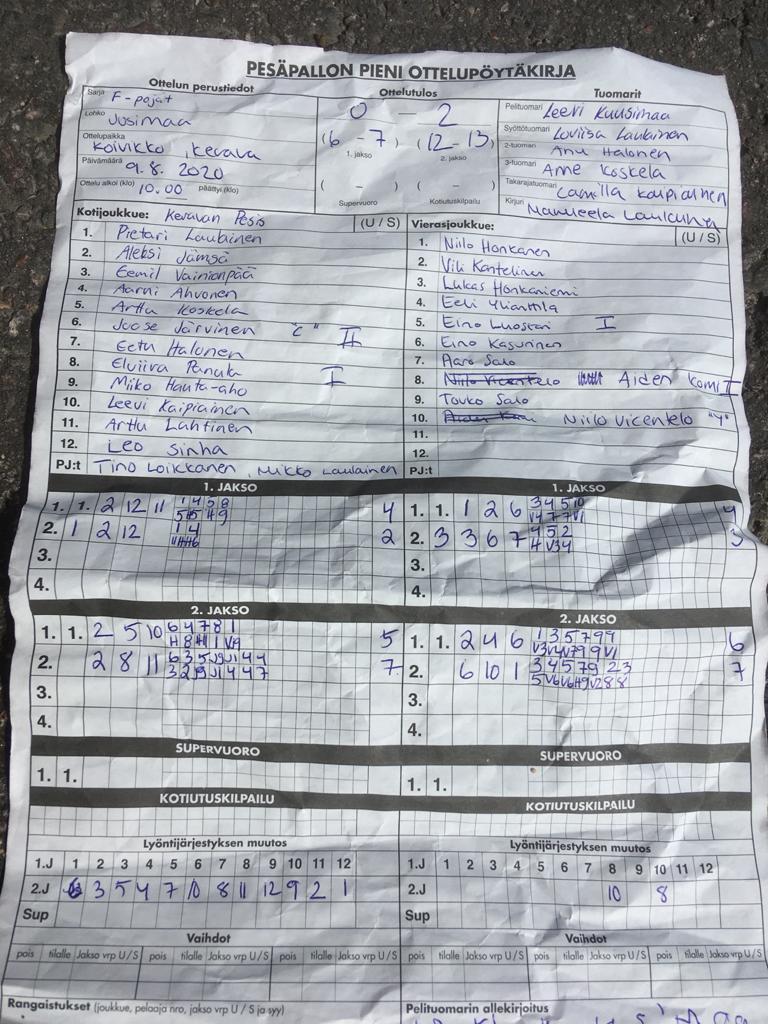 PESÄPALLON PIENI OTTELUPÖYTÄKIRJA
Ottelun perustiedot
Ottelutulos
Tuomarit
Sarja F-pojat
Lohko Uusimaa
Ottelupaikka Koivikko, Kerava
Päivämäärä 9.8. 2020
Ottelu alkoi (klo) 10.00 päättyi (klo)
0 – 2
(6 – 7) (12 – 13)
1. jakso 2. jakso
( – ) ( – )
Supervuoro Kotiutuskilpailu
Pelituomari Leevi Kuusimaa
Syöttötuomari Loviisa Laulainen
2-tuomari Anu Halonen
3-tuomari Anne Koskela
Takarajatuomari Camilla Kaipiainen
Kirjuri
Kotijoukkue: Keravan Pesis (U / S)
1. Pietari Laulainen
2. Aleksi Jämsä
3. Eemil Vainionpää
4. Aarni Ahvonen
5. Arttu Koskela
6. Joose Järvinen "C" II
7. Eetu Halonen
8. Elviira Panula I
9. Miiko Hauta-aho
10. Leevi Kaipiainen
11. Arttu Lahtinen
12. Leo Sinha
PJ:t Tino Loikkanen, Mikko Laulainen
Vierasjoukkue: (U / S)
1. Niilo Honkanen
2. Vili Kantelinen
3. Lukas Honkaniemi
4. Eeli Ylianttila
5. Eino Luostari I
6. Eino Kasurinen
7. Aaro Salo
8. Niilo Vicentelo Aiden Komi I
9. Touko Salo
10. Niilo Vicentelo "Y"
11.
12.
PJ:t
1. JAKSO
1. 1. 2 12 11 1 4 5 8 4
2. 1 2 12 1 4 2
3.
4.
1. JAKSO
1. 1. 1 2 6 3 4 5 10 4
2. 3 3 6 7 4 5 2 3
3.
4.
2. JAKSO
1. 1. 2 5 10 6 4 7 8 1 5
2. 12 8 11 7
3.
4.
2. JAKSO
1. 1. 2 4 6 1 3 5 7 9 9 6
2. 6 10 1 3 4 5 7 9 2 3 7
3.
4.
SUPERVUORO
1. 1.
SUPERVUORO
1. 1.
KOTIUTUSKILPAILU
KOTIUTUSKILPAILU
Lyöntijärjestyksen muutos
1.J 1 2 3 4 5 6 7 8 9 10 11 12
2.J 6 3 5 4 7 10 8 11 12 9 2 1
Sup
Lyöntijärjestyksen muutos
1.J 1 2 3 4 5 6 7 8 9 10 11 12
2.J 10 8
Sup
Vaihdot
pois tilalle Jakso vrp U / S pois tilalle Jakso vrp U / S pois tilalle Jakso vrp U / S
Vaihdot
pois tilalle Jakso vrp U / S pois tilalle Jakso vrp U / S pois tilalle Jakso vrp U / S
Rangaistukset (joukkue, pelaaja nro, jakso vrp U / S ja syy)
Pelituomarin allekirjoitus